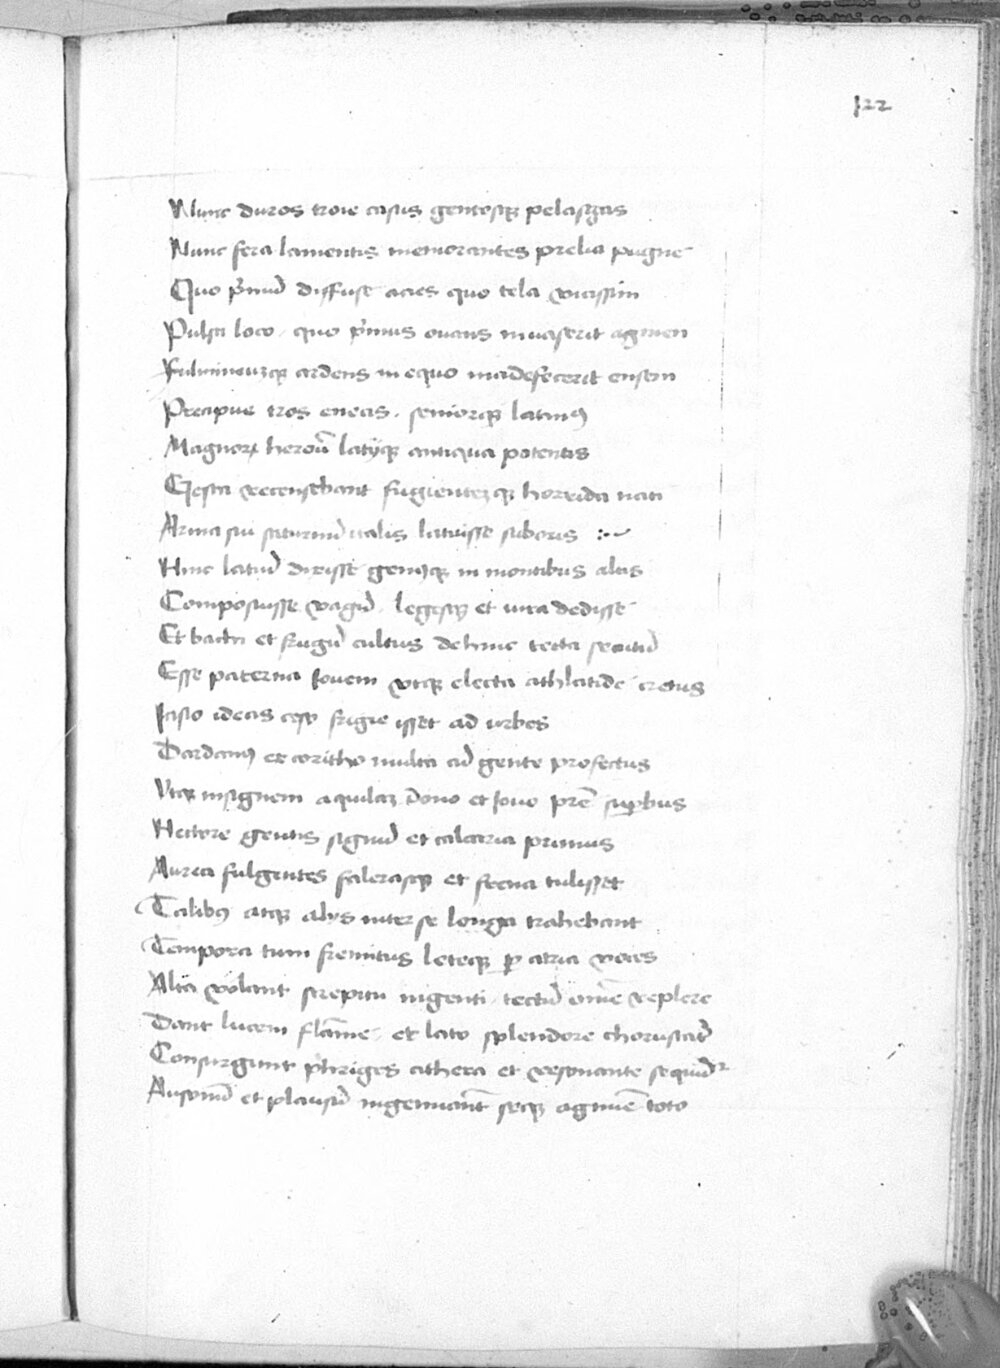 122
Nunc duros troie casus gentesq; pelasgas
Nunc fera lamentis memorantes prelia pugne
Quo p̃mũ diffuse acies quo tela vicissim
Pulsa loco. quo p̃mus ouans inuaserit agmen
Fulmineuzq; ardens in equo madefecerit ensem
Precipue tros eneas. seniorq; latinꝰ
Magnoꝝ heroũ latijq; antiqua potentis
Gesta recensebant fugientezq; horrida nati
Arma sui saturnũ italis latuisse sub oris
Hinc latiũ dixisse genusq; in montibus altis
Composuisse vagũ. legesq; et iura dedisse
Et bachi et frugũ cultus dehinc tecta secutũ
Esse paterna Iouem vtq; electa athlantide cretus
Iasio ideas ceso frigie isset ad urbes
Dardanꝰ et coritho multa cũ gente profectus
Vtq; insignem aquilaz dono et Ioue prẽ suꝑbus
Hectore gentis signũ et calcaria primus
Aurea fulgentes falerasq; et frena tulisset
Talibꝰ atq; alijs inter se longa trahebant
Tempora tum fremitus leteq; ꝑ atria voces
Alta volant strepitu ingenti. tectũ om̃e replere
Dant lucem flãme. et lato splendore choruscãt
Consurgunt phriges cithera et resonante sequũtᵣ
Ausonij et plausũ ingeminãt seq; agmine toto